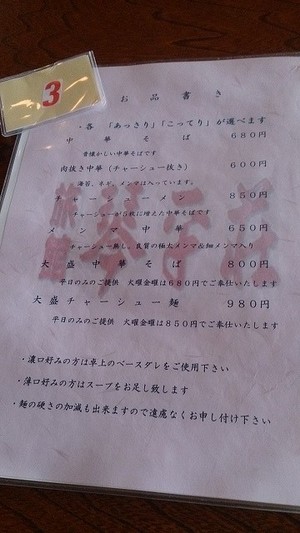 3
お品書き
・各「あっさり」「こってり」が選べます
中華そば 680円
昔懐かしい中華そばです
肉抜き中華(チャーシュー抜き) 600円
海苔、ネギ、メンマは入っています。
チャーシューメン 850円
チャーシューが5枚に増えた中華そばです
メンマ中華 650円
チャーシュー無し。良質の極太メンマ&細メンマ入り
大盛中華そば 800円
平日のみのご提供 火曜金曜は680円でご奉仕いたします
大盛チャーシュー麺 980円
平日のみのご提供 火曜金曜は850円でご奉仕いたします
・濃口好みの方は卓上のベースダレをご使用下さい
・薄口好みの方はスープをお足し致します
・麺の硬さの加減も出来ますので遠慮なくお申し付け下さい